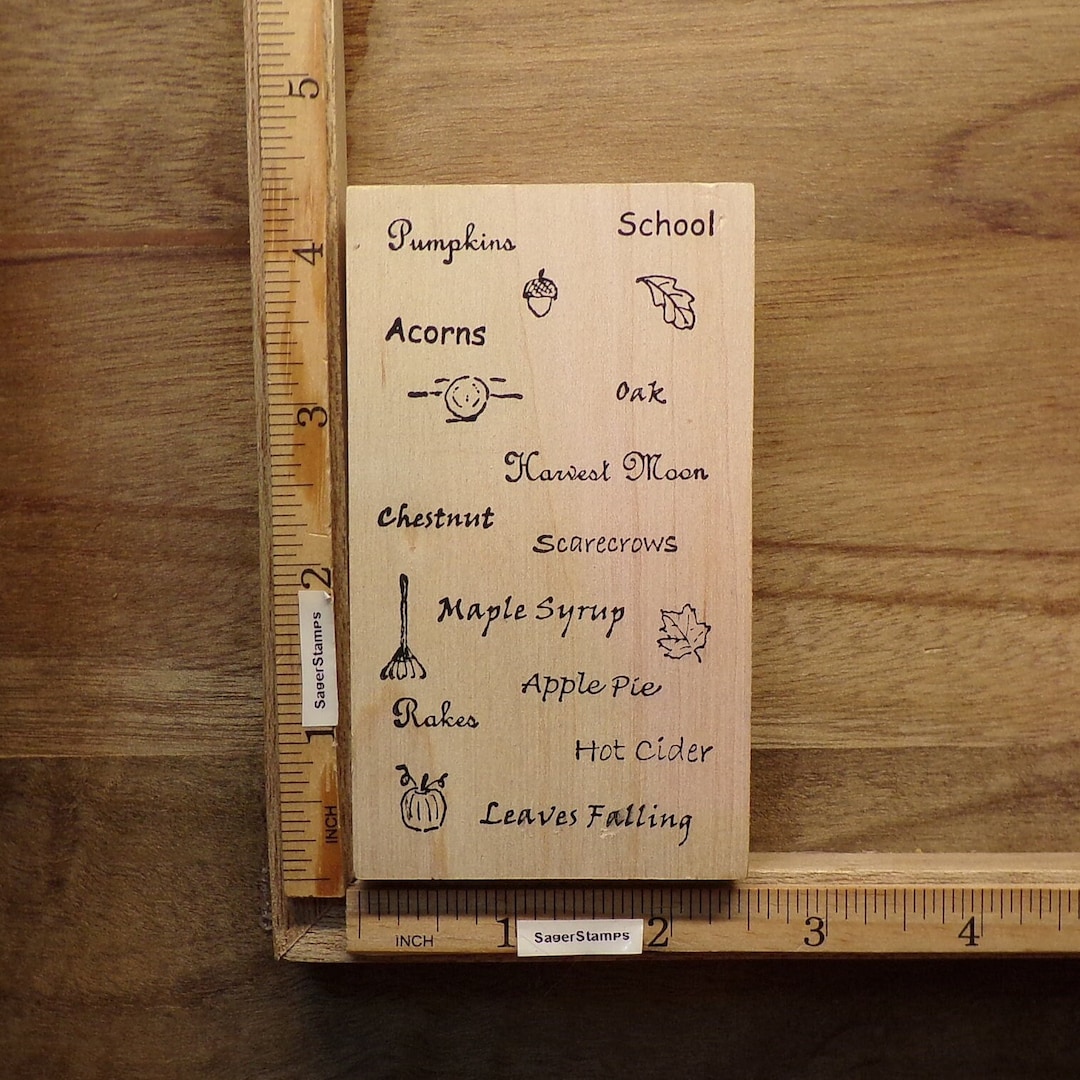 Pumpkins
School
Acorns
Oak
Harvest Moon
Chestnut
Scarecrows
Maple Syrup
Apple Pie
Rakes
Hot Cider
Leaves Falling
5
4
3
2
SagerStamps
1
INCH
INCH
1
SagerStamps
2
3
4